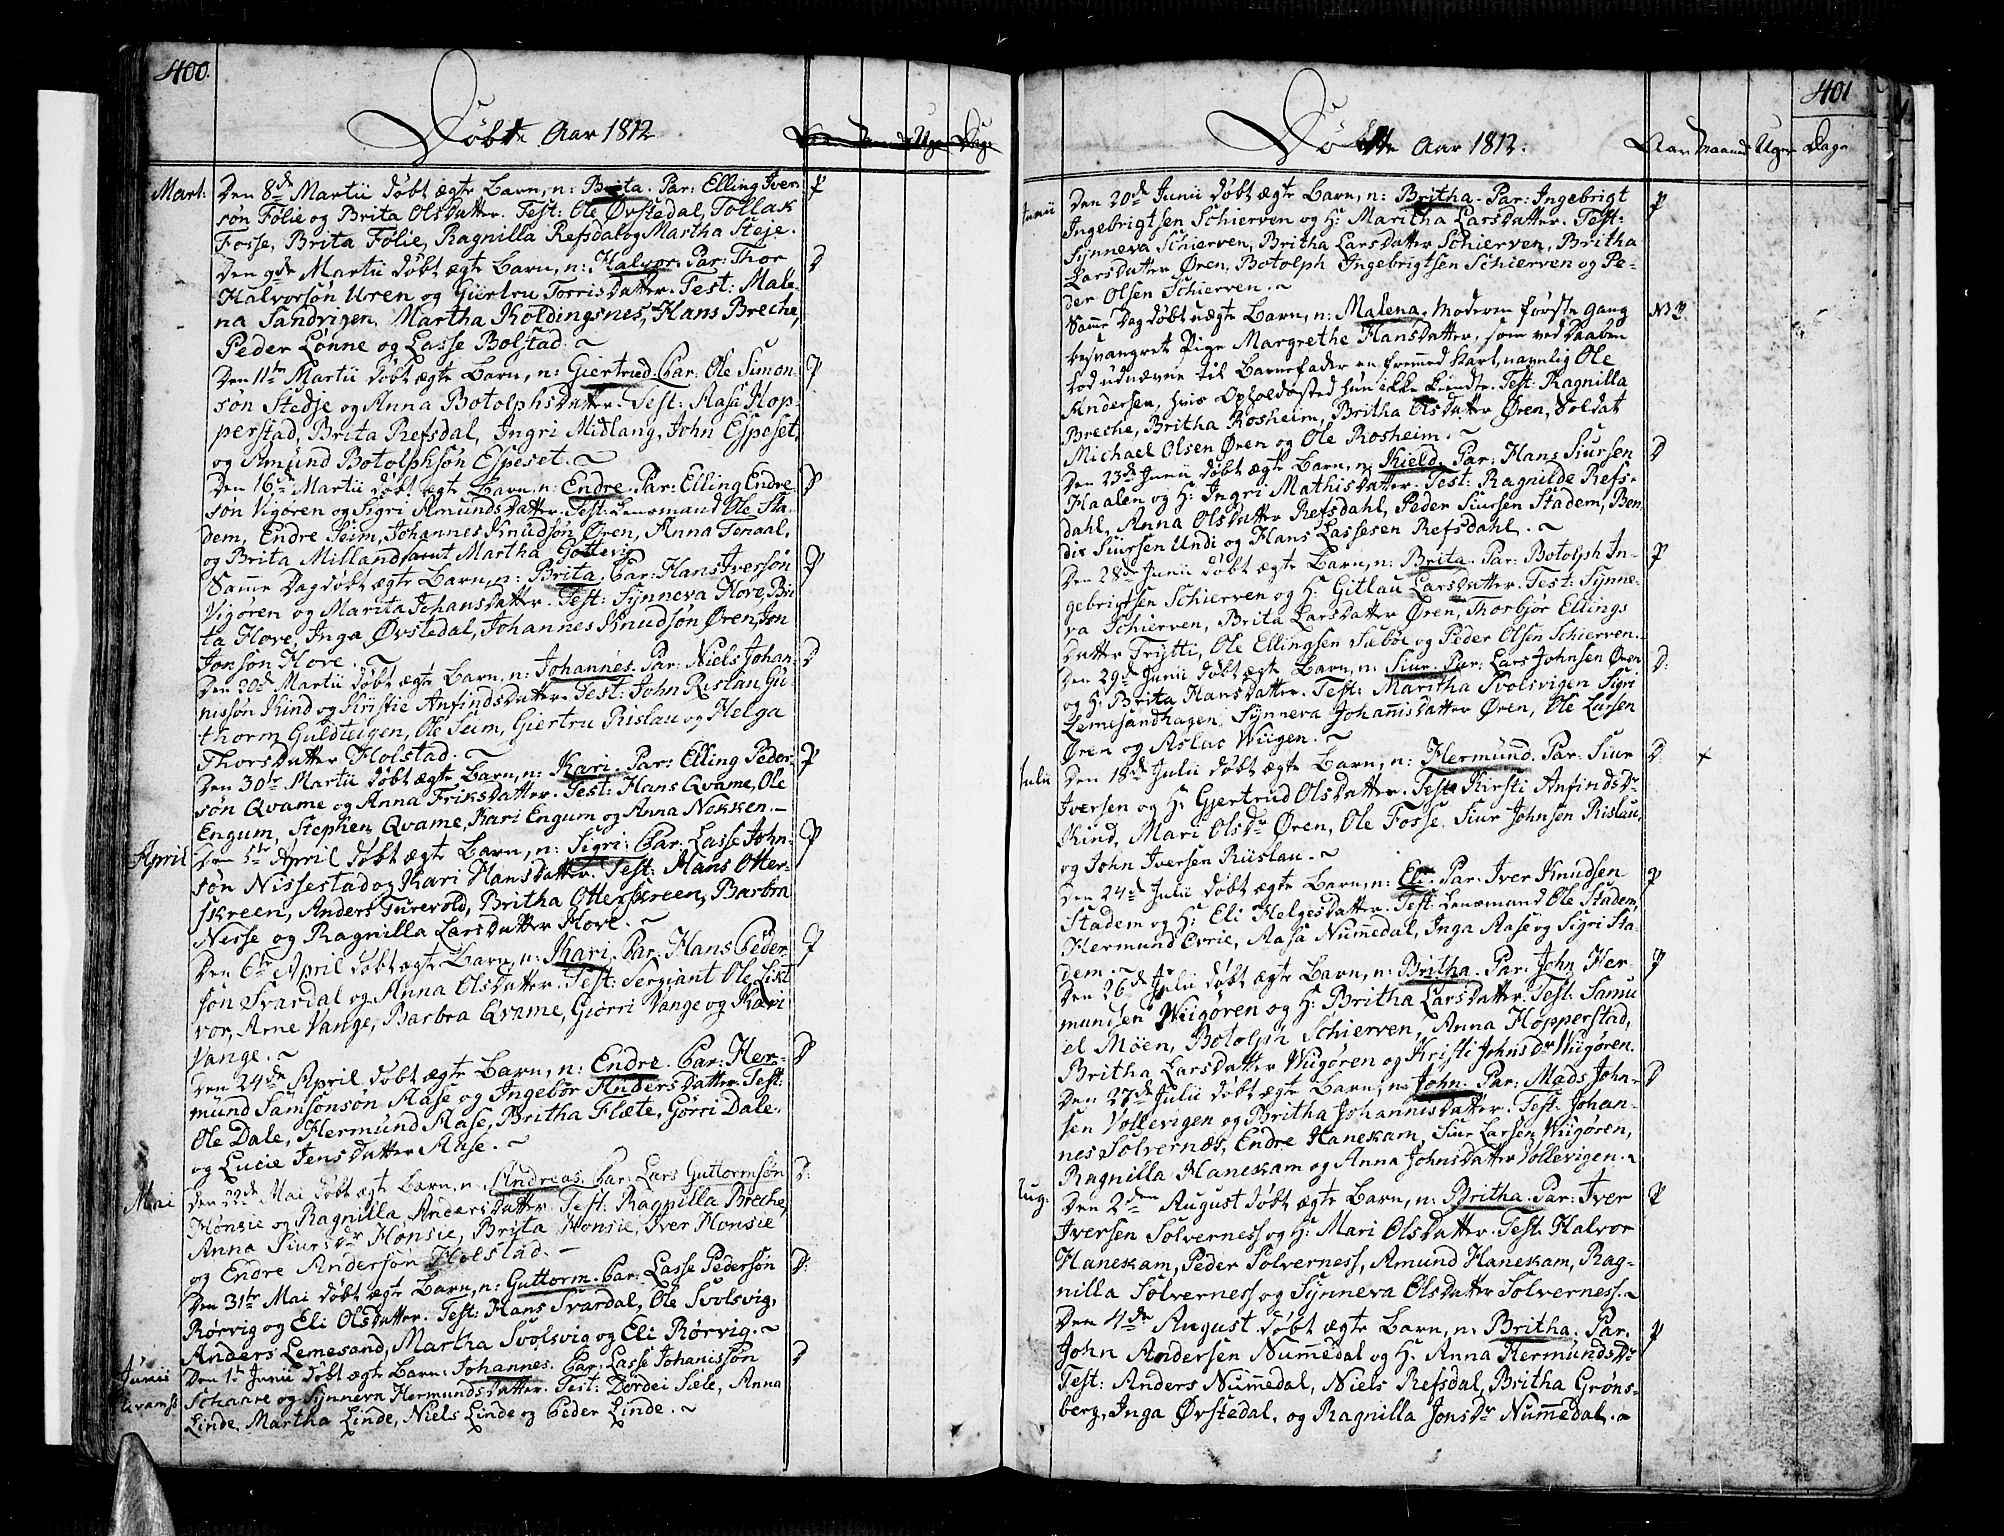 400.
Døbte Aar 1812
Uger Dage
Mart: Den 8de Martii døbt ægte Barn, n: Brita. Par: Elling Iver- P
søn Følie og Brita Olsdatter. Test: Ole Øvstedal, Tollak
Fosse, Brita Følie, Ragnilla Refsdal og Martha Steje.
Den 9de Martii døbt ægte Barn, n: Halvor. Par: Thor D
Halvorsøn Uren og Giertru Torrisdatter. Test: Male-
na Sandvigen, Martha Koldingsnes, Hans Breche,
Peder Lønne og Lasse Bolstad. ~
Den 11te Martii døbt ægte Barn, n: Giertrud. Par: Ole Simon- P
søn Stedje og Anna Botolphsdatter. Test: Aasa Hop-
perstad, Brita Refsdal, Ingri Midlang, John Espeset,
og Amund Botolphsøn Espeset. ~
Den 16de Martii døbt ægte Barn, n: Endre. Par: Elling Endre- D
søn Vigøren og Sigri Amundsdatter. Test: Lensmand Ole Sta-
dem, Endre Seim, Johannes Knudsøn Øren, Anna Tenaal,
og Brita Milland samt Martha
Samme Dag døbt ægte Barn, n: Brita. Par: Hans Iversøn P
Vigøren og Marita Johansdatter. Test: Synneva Hove, Bri-
ta Hove, Inga Øvstedal, Johannes Knudsøn Øren, Jon
Jonsøn Hove. ~
Den 20de Martii døbt ægte Barn, n: Johannes. Par: Niels Johan- D
nissøn Kind og Kristie Anfindsdatter. Test: John Rislau Gu-
thorm Guldteigen, Ole Seim, Giertru Rislau og Helga
Thorsdatter Holstad. ~
Den 30te Martii døbt ægte Barn, n: Kari. Par: Elling Peder- P
søn Qvame og Anna Eriksdatter. Test: Hans Qvame, Ole
Engum, Stephen Qvame, Kari Engum og Anna Nokken. —
April Den 5te April døbt ægte Barn, n: Sigri. Par: Lasse John- P
søn Nissestad og Kari Hansdatter. Test: Hans Otter-
skreen, Anders Turevold, Britha Otterskreen, Barbra
Nesse og Ragnilla Larsdatter Hove. ~
Den 6te April døbt ægte Barn, n: Kari. Par: Hans Peder- P
søn Svardal og Anna Olsdatter. Test: Sergiant Ole Likt-
vor, Arne Vange, Barbra Qvame, Giørri Vange og Kari
Vange. ~
Den 24de April døbt ægte Barn, n: Endre. Par: Her- D
mund Samsonsøn Aase og Ingebør Andersdatter. Test:
Ole Dale, Hermund Aase, Britha Flæte, Gørri Dale,
og Lucie Jensdatter Aase. ~
Mai Den 22de Mai døbt ægte Barn, n: Andreas. Par: Lars Guttormsøn D:
Hønsie og Ragnilla Andersdatter. Test: Ragnilla Breche,
Anna Siursdr Hønsie, Brita Hønsie, Iver Hønsie
og Endre Andersøn Holstad. —
Den 31te Mai døbt ægte Barn, n: Guttorm. Par: Lasse Pedersøn D:
Rørvig og Eli Olsdatter. Test: Hans Svardal, Ole Svolsvig,
Anders Lemesand, Martha Svolsvig og Eli Rørvig. ~
Junii Den 1te Junii døbt ægte Barn: Johannes. Par: Lasse Johanissøn D
Schaare og Synneva Hermundsdatter. Test: Dordei Sæle, Anna
Linde, Martha Linde, Niels Linde og Peder Linde. ~
401
Døbte Aar 1812.
Aar Maaned Uger Dage
Junii Den 20de Junii døbt ægte Barn, n: Britha. Par: Ingebrigt P
Ingebrigtsen Schierven og H: Maritha Larsdatter. Test:
Synneva Schierven, Britha Larsdatter Schierven, Britha
Larsdatter Øren, Botolph Ingebrigtsen Schierven og Pe-
der Olsen Schierven. ~
Samme Dag døbt uægte Barn, n: Malena. Moderen første Gang
besvangret Pige Margrethe Hansdatter, som ved Daaben
lod udnævne til Barnefader en fremmed Karl, navnlig Ole
Andersen, hvis Opholdssted hun ikke kiendte. Test: Ragnilla
Breche, Britha Rosheim, Britha Olsdatter Øren, Soldat
Michael Olsen Øren og Ole Rosheim. ~
Den 23de Junii døbt ægte Barn, n: Kield. Par: Hans Siursen D
Haalen og H: Ingri Mathisdatter. Test: Ragnilde Refs-
dahl, Anna Olsdatter Refsdahl, Peder Siursen Stadem, Ben-
dix Siursen Undi og Hans Lassesen Refsdahl. ~
Den 28de Junii døbt ægte Barn, n: Brita. Par: Botolph In- P
gebrigtsen Schierven og H: Gitlau Larsdatter. Test: Synne-
va Schierven, Brita Larsdatter Øren, Thorbjør Ellings
datter Frytti, Ole Ellingsen Sæbøe og Peder Olsen Schierven.
Den 29de Junii døbt ægte Barn, n: Siur. Par: Lars Johnsen Øren D:
og H: Brita Hansdatter. Test: Maritha Svolsvigen Sigri
Lemesandhagen, Synneva Johannisdatter Øren, Ole Larsen
Øren og Aslac Wiigen. ~
Julii Den 18de Julii døbt ægte Barn, n: Hermund. Par: Siur D +
Iversen og H: Gjertrud Olsdatter. Test: Kirsti Anfindsdr
Kind, Mari Olsdr Øren, Ole Fosse, Siur Johnsen Rislau,
og John Iversen Riislau. ~
Den 24de Julii døbt ægte Barn, n: Eli. Par: Iver Knudsen P
Stadem og H: Eli Helgesdatter. Test: Lensmand Ole Stadem,
Hermund Orrie, Aasa Nummedal, Inga Aase og Sigri Sta-
dem. ~
Den 26de Julii døbt ægte Barn, n: Britha. Par: John Her- P
mundsen Wiigøren og H: Britha Larsdatter. Test: Samu
el Møen, Botolph Schierven, Anna Hopperstad,
Britha Larsdatter Wiigøren og Kristi Johnsdr Wiigøren.
Den 27de Julii døbt ægte Barn, n: John. Par: Mads John- D
sen Vollevigen og Britha Johannisdatter. Test: Johan-
nes Sølvernæs, Endre Hanekam, Siur Larsen Wiigøren,
Ragnilla Hanekam og Anna Johnsdatter Vollevigen. ~
Aug: Den 2den August døbt ægte Barn, n: Britha. Par: Iver P
Iversen Sølverness og H: Mari Olsdatter. Test: Halvor
Hanekam, Peder Sølverness, Amund Hanekam, Rag-
nilla Sølverness og Synneva Olsdatter Sølverness. ~
Den 4de August døbt ægte Barn, n: Britha. Par: P
John Andersen Nummedal og H: Anna Hermundsdr
Test: Anders Nummedal, Niels Refsdal, Britha Grøns-
berg, Inga Øvstedal, og Ragnilla Jonsdr Nummedal. ~